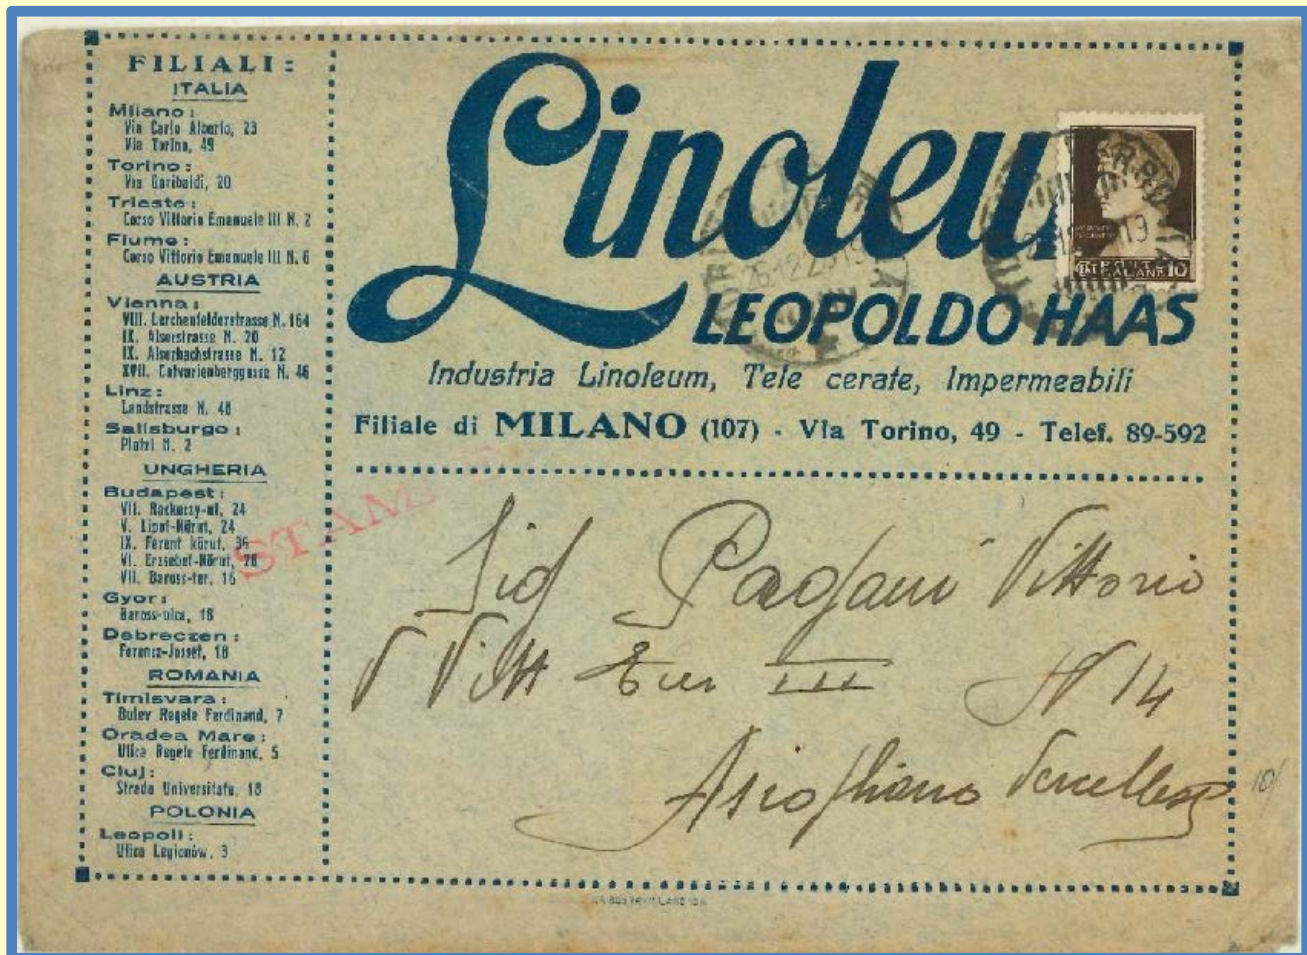 FILIALI:
ITALIA
Milano:
Via Carlo Alberto, 23
Via Torino, 49
Torino:
Via Garibaldi, 20
Trieste:
Corso Vittorio Emanuele III N. 2
Fiume:
Corso Vittorio Emanuele III N. 6
AUSTRIA
Vienna:
VIII. Lerchenfelderstrasse N. 164
IX. Alserstrasse N. 20
IX. Alserbachstrasse N. 12
XVII. Calvarienberggasse N. 46
Linz:
Landstrasse N. 48
Salisburgo:
Platzl N. 2
UNGHERIA
Budapest:
VII. Rackoczy-ut, 24
V. Liput-Körut, 24
IX. Ferent körut, 36
VI. Erzsebet-Körut, 26
VII. Baross-ter, 16
Gyor:
Baross-utca, 18
Debreczen:
Ferencz-Jossef, 18
ROMANIA
Timisvara:
Bulev Regele Ferdinand, 7
Oradea Mare:
Ulica Regele Ferdinand, 5
Cluj:
Strada Universitatu, 18
POLONIA
Leopoli:
Ulica Legionów, 3
Linoleum
LEOPOLDO HAAS
Industria Linoleum, Tele cerate, Impermeabili
Filiale di MILANO (107) - Via Torino, 49 - Telef. 89-592
POSTE
ITALIANE 10
STAM
Sig Pagani Vittorio
V Vitt Em III N 14
Asigliano Vercellese